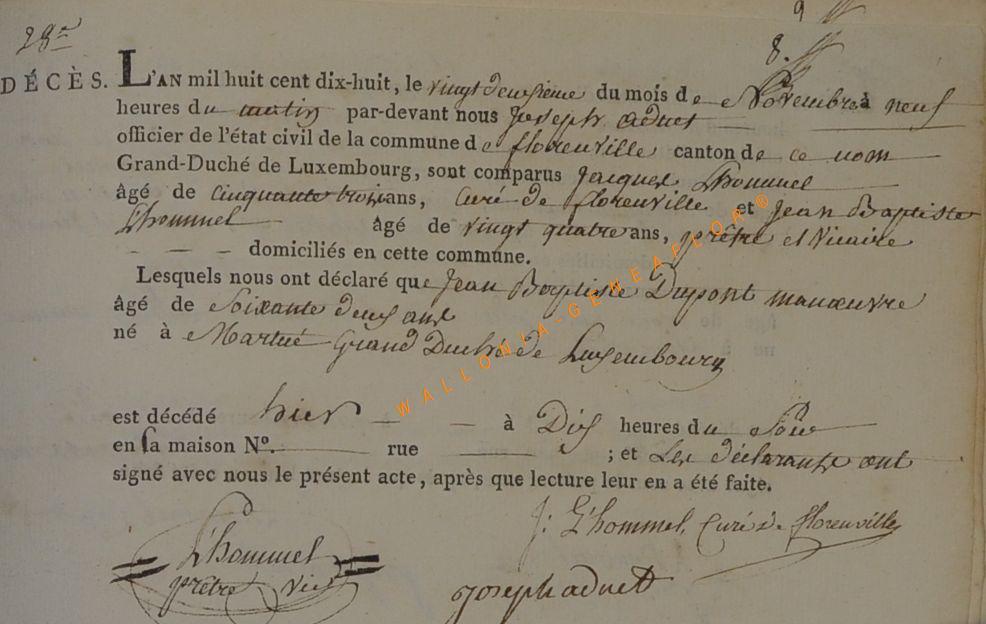 28me
9
8.
DÉCÈS. L'AN mil huit cent dix-huit, le vingt deuxieme du mois de Novembre à neuf
heures du matin par-devant nous Joseph adnet
officier de l'état civil de la commune de florenville canton de ce nom
Grand-Duché de Luxembourg, sont comparus Jacques Lhommel
âgé de cinquante trois ans, Curé de florenville et Jean Baptiste
Lhommel âgé de vingt quatre ans, prêtre et Vicaire
domiciliés en cette commune.
Lesquels nous ont déclaré que Jean Baptiste Dupont manœuvre
âgé de Soixante deux ans
né à Martué Grand Duché de Luxembourg
est décédé hier à Dix heures du Soir
en sa maison N°. rue ; et Les déclarants ont
signé avec nous le présent acte, après que lecture leur en a été faite.
J: L'hommel, Curé de florenville
L'hommel
prêtre Vic
joseph adnet
WALLONIA-GENEAFLOR®